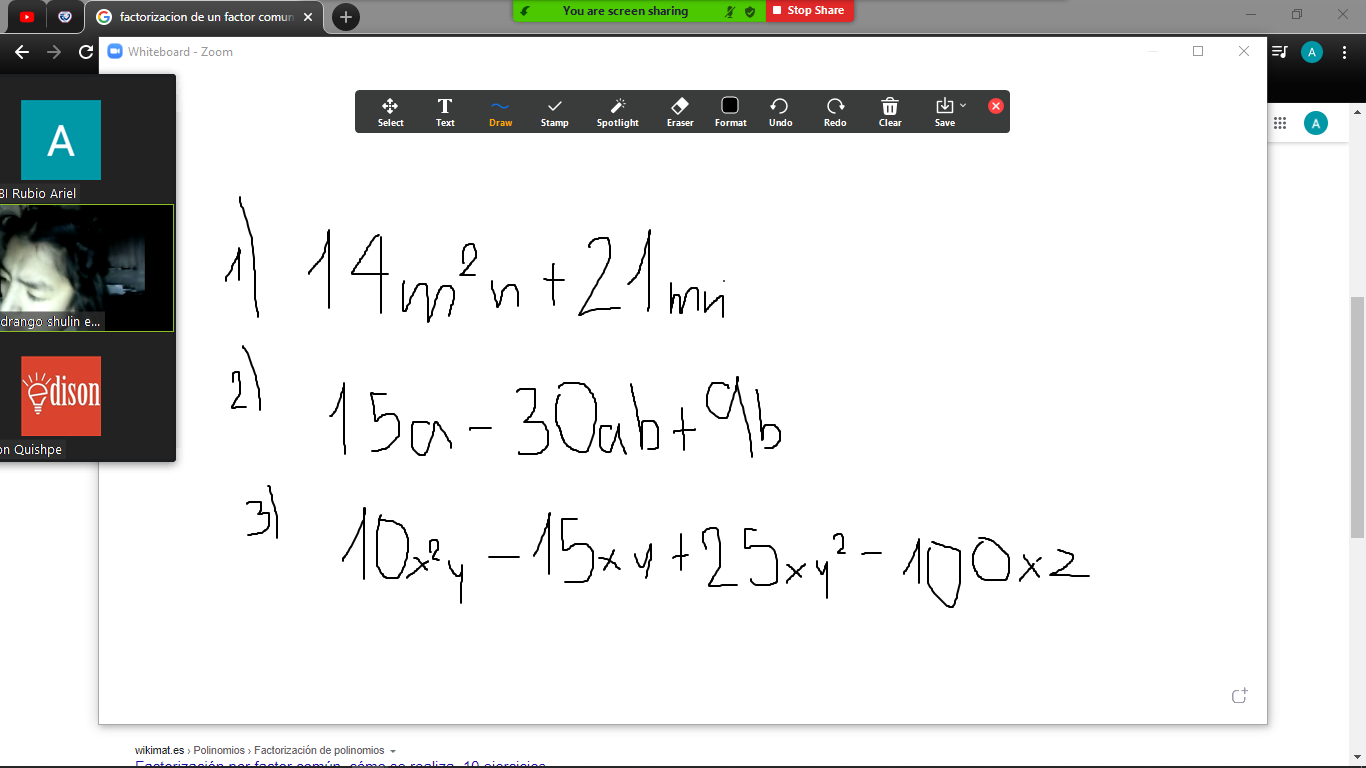 factorizacion de un factor comun
You are screen sharing
Stop Share
Whiteboard - Zoom
A
Select
Text
Draw
Stamp
Spotlight
Eraser
Format
Undo
Redo
Clear
Save
A
A
BI Rubio Ariel
drango shulin e...
edison
on Quishpe
A
1) 14m²n+21mn
2) 15a-30ab+9b
3) 10x²y-15xy+25xy²-100xz
wikimat.es › Polinomios › Factorización de polinomios
Factorización por factor común, cómo se realiza, 10 ejercicios